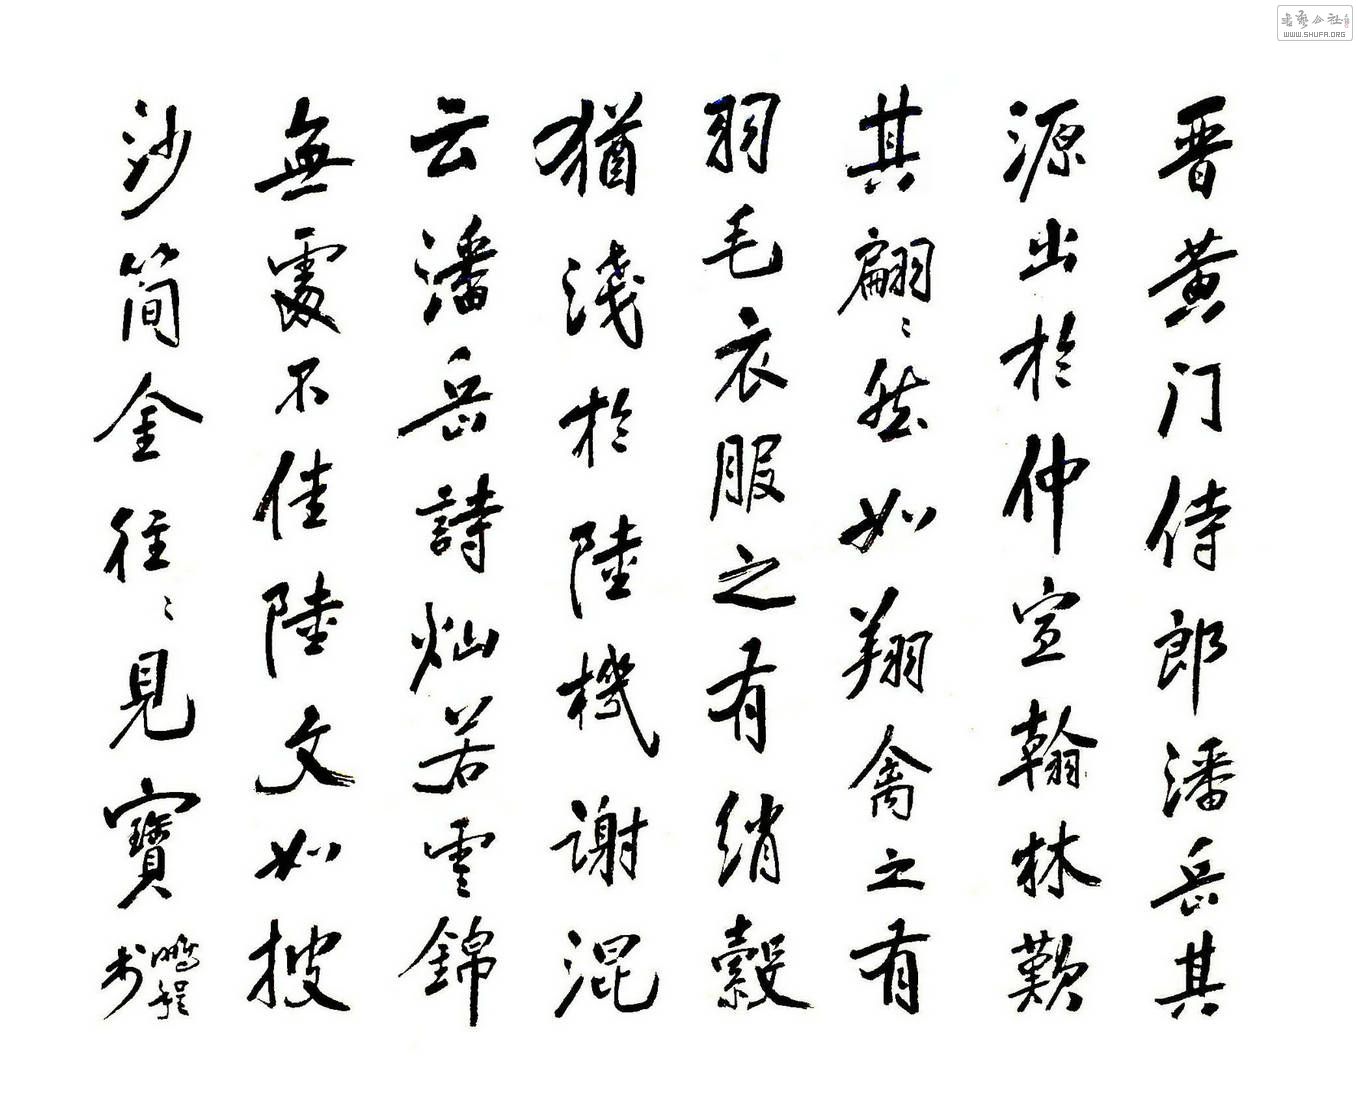 晋黄门侍郎潘岳其
源出於仲宣翰林歎
其翩〻然如翔禽之有
羽毛衣服之有绡縠
猶淺於陸機谢混
云潘岳詩灿若雲錦
無處不佳陸文如披
沙简金往〻見寶
鵬程书
书艺公社
WWW.SHUFA.ORG